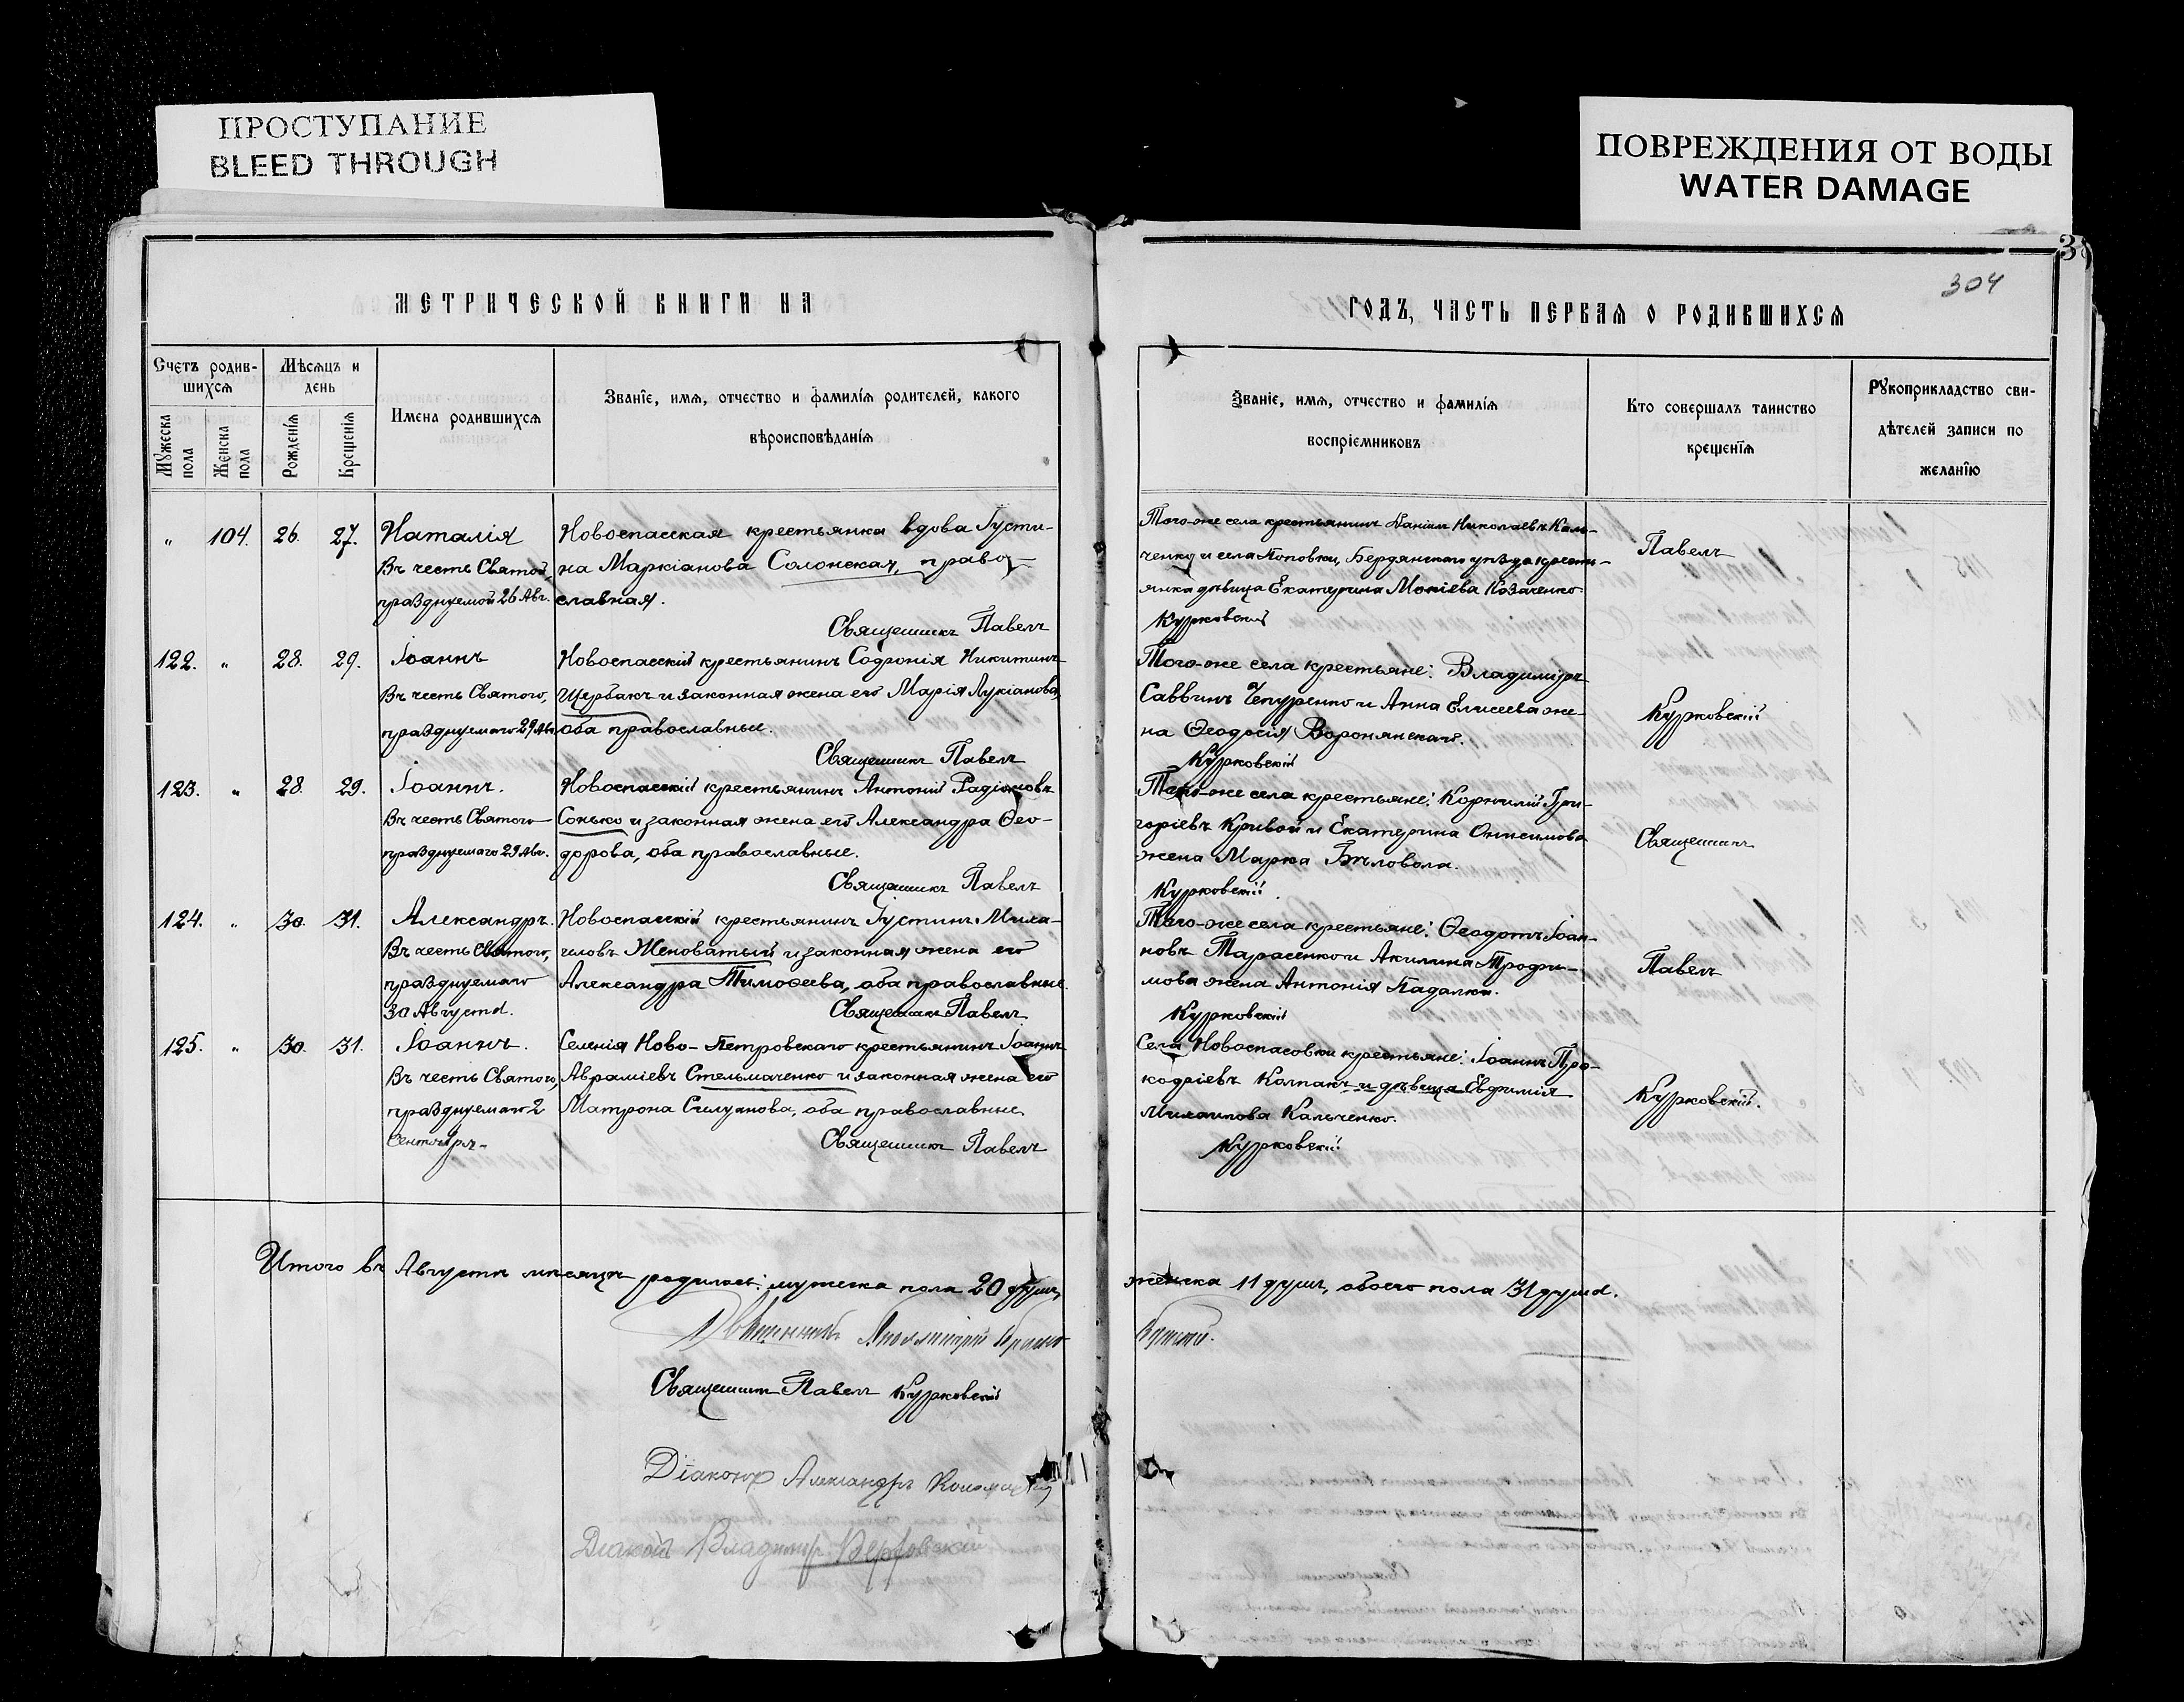 ПРОСТУПАНИЕ
BLEED THROUGH
ПОВРЕЖДЕНИЯ ОТ ВОДЫ
WATER DAMAGE
304
МЕТРИЧЕСКОЙ КНИГИ НА
ГОДЪ, ЧАСТЬ ПЕРВАЯ О РОДИВШИХСЯ
Счетъ родив-
шихся
Мужеска пола
Женска пола
Мѣсяцъ и
день
Рожденія
Крещенія
Имена родившихся
Званіе, имя, отчество и фамилія родителей, какого
вѣроисповѣданія
Званіе, имя, отчество и фамилія
воспріемниковъ
Кто совершалъ таинство
крещенія
Рукоприкладство сви-
дѣтелей записи по
желанію
„ 104. 26. 27. Наталія
Въ честь Святой,
празднуемой 26 Авг.
Новоспасская крестьянка вдова Густи-
на Маркіанова Солонская, право-
славная.
Священникъ Павелъ
Того-же села крестьянинъ Даніилъ Николаевъ Каль-
ченко и села Поповки, Бердянскаго уѣзда кресть-
янка дѣвица Екатерина Мокіева Козаченко
Курковскій
Павелъ
122. „ 28. 29. Іоаннъ
Въ честь Святого,
празднуемаго 29 Авг.
Новоспасскій крестьянинъ Софронія Никитинъ
Щербакъ и законная жена его Марія Лукіанова,
оба православные.
Священникъ Павелъ
Того-же села крестьяне: Владиміръ
Саввинъ Чепуренко и Анна Елисеева же-
на Ѳеодосія Воронянскаго.
Курковскій
Курковскій
123. „ 28. 29. Іоаннъ.
Въ честь Святого
празднуемаго 29 Авг.
Новоспасскій крестьянинъ Антоній Радіоновъ
Сонько и законная жена его Александра Ѳео-
дорова, оба православные.
Священникъ Павелъ
Того-же села крестьяне: Корнилій Гри-
горіевъ Кривой и Екатерина Онисимова
жена Марка Бѣловола.
Курковскій
Священникъ
124. „ 30. 31. Александръ.
Въ честь Святого,
празднуемаго
30 Августа.
Новоспасскій крестьянинъ Густинъ Миха-
иловъ Женоватый и законная жена его
Александра Тимоѳеева, оба православные.
Священникъ Павелъ
Того-же села крестьяне: Ѳеодотъ Іоан-
новъ Тарасенко и Акилина Трофи-
мова жена Антонія Падалки.
Курковскій
Павелъ
125. „ 30. 31. Іоаннъ.
Въ честь Святого,
празднуемаго 2
Сентября.
Селенія Ново-Петровскаго крестьянинъ Іоаннъ
Авраміевъ Стельмаченко и законная жена его
Матрона Силуанова, оба православные
Священникъ Павелъ
Села Новоспасовки крестьяне: Іоаннъ Про-
кофіевъ Колпакъ и дѣвица Евфимія
Михаилова Кальченко.
Курковскій
Курковскій.
Итого въ Августѣ мѣсяцѣ родилось: мужеска пола 20 душъ,
женска 11 душъ, обоего пола 31 душа.
Священникъ
Священникъ Павелъ Курковскій
Діаконъ Александръ
Діаконъ Владиміръ